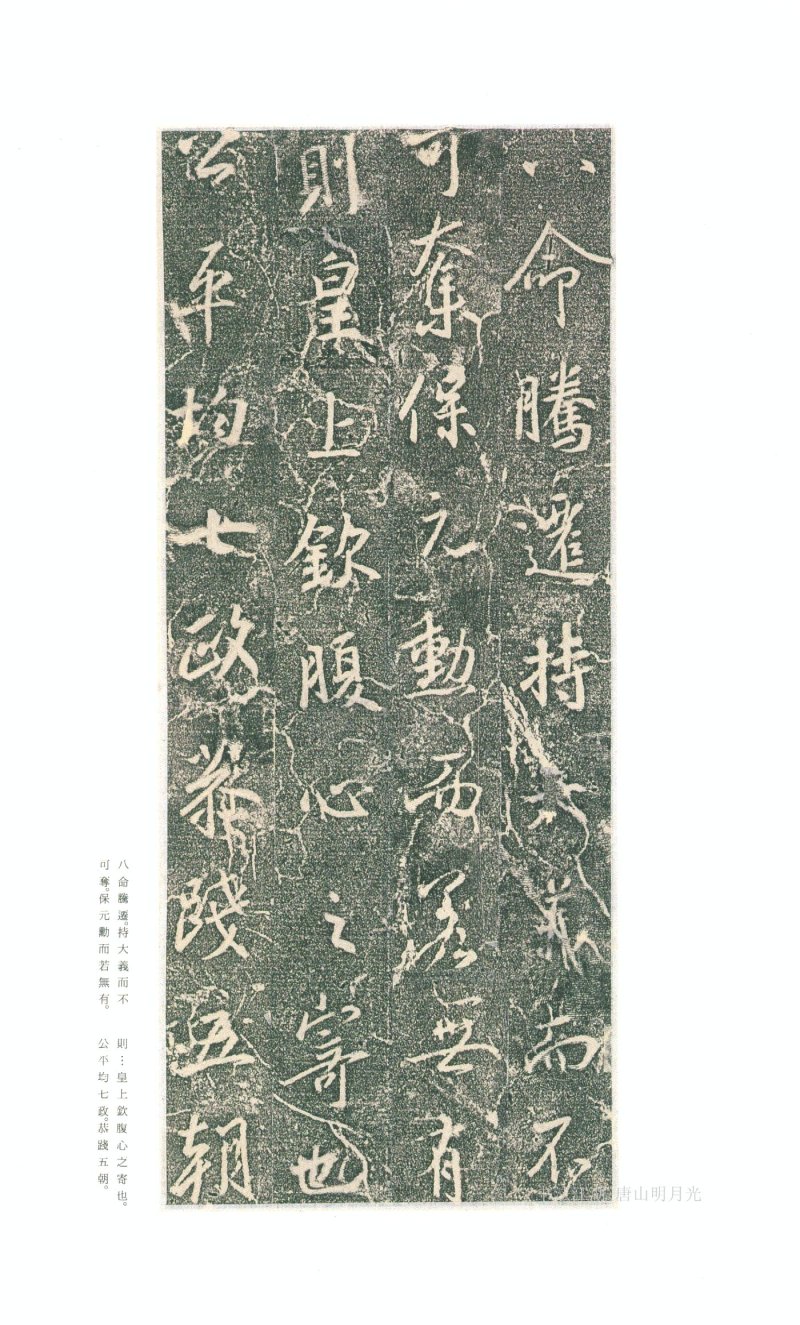 八命騰遷持大義而不
可奪保元勳而若無有
則皇上欽腹心之寄也
公平均七政恭踐五朝
八命騰遷。持大義而不
可奪。保元勳而若無有。
則…皇上欽腹心之寄也。
公平均七政。恭踐五朝。
唐山明月光